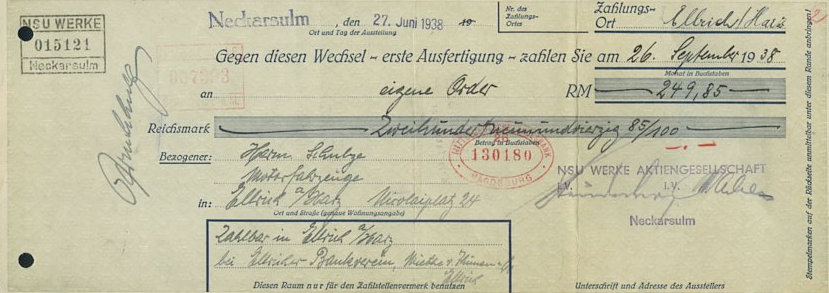 NSU WERKE
015121
Neckarsulm
Neckarsulm, den 27. Juni 1938 19
Ort und Tag der Ausstellung
Nr. des Zahlungs-Ortes
Zahlungs-Ort Ellrich/Harz
2
Gegen diesen Wechsel – erste Ausfertigung – zahlen Sie am 26. September 1938
Monat in Buchstaben
an eigene Order RM 249,85
Reichsmark Zweihundertneunundvierzig 85/100
Betrag in Buchstaben
Bezogener: Herm. Schulze
Motorfahrzeuge
in: Ellrich a/Harz Nicolaiplatz 24
Ort und Straße (genaue Wohnungsangabe)
130180
MAGDEBURG
NSU WERKE AKTIENGESELLSCHAFT
i.V. i.V.
Neckarsulm
Zahlbar in Ellrich a/Harz
bei Ellricher Bankverein,
Ellrich
Diesen Raum nur für den Zahlstellenvermerk benutzen
Unterschrift und Adresse des Ausstellers
Stempelmarken auf der Rückseite unmittelbar unter diesem Rande anbringen!